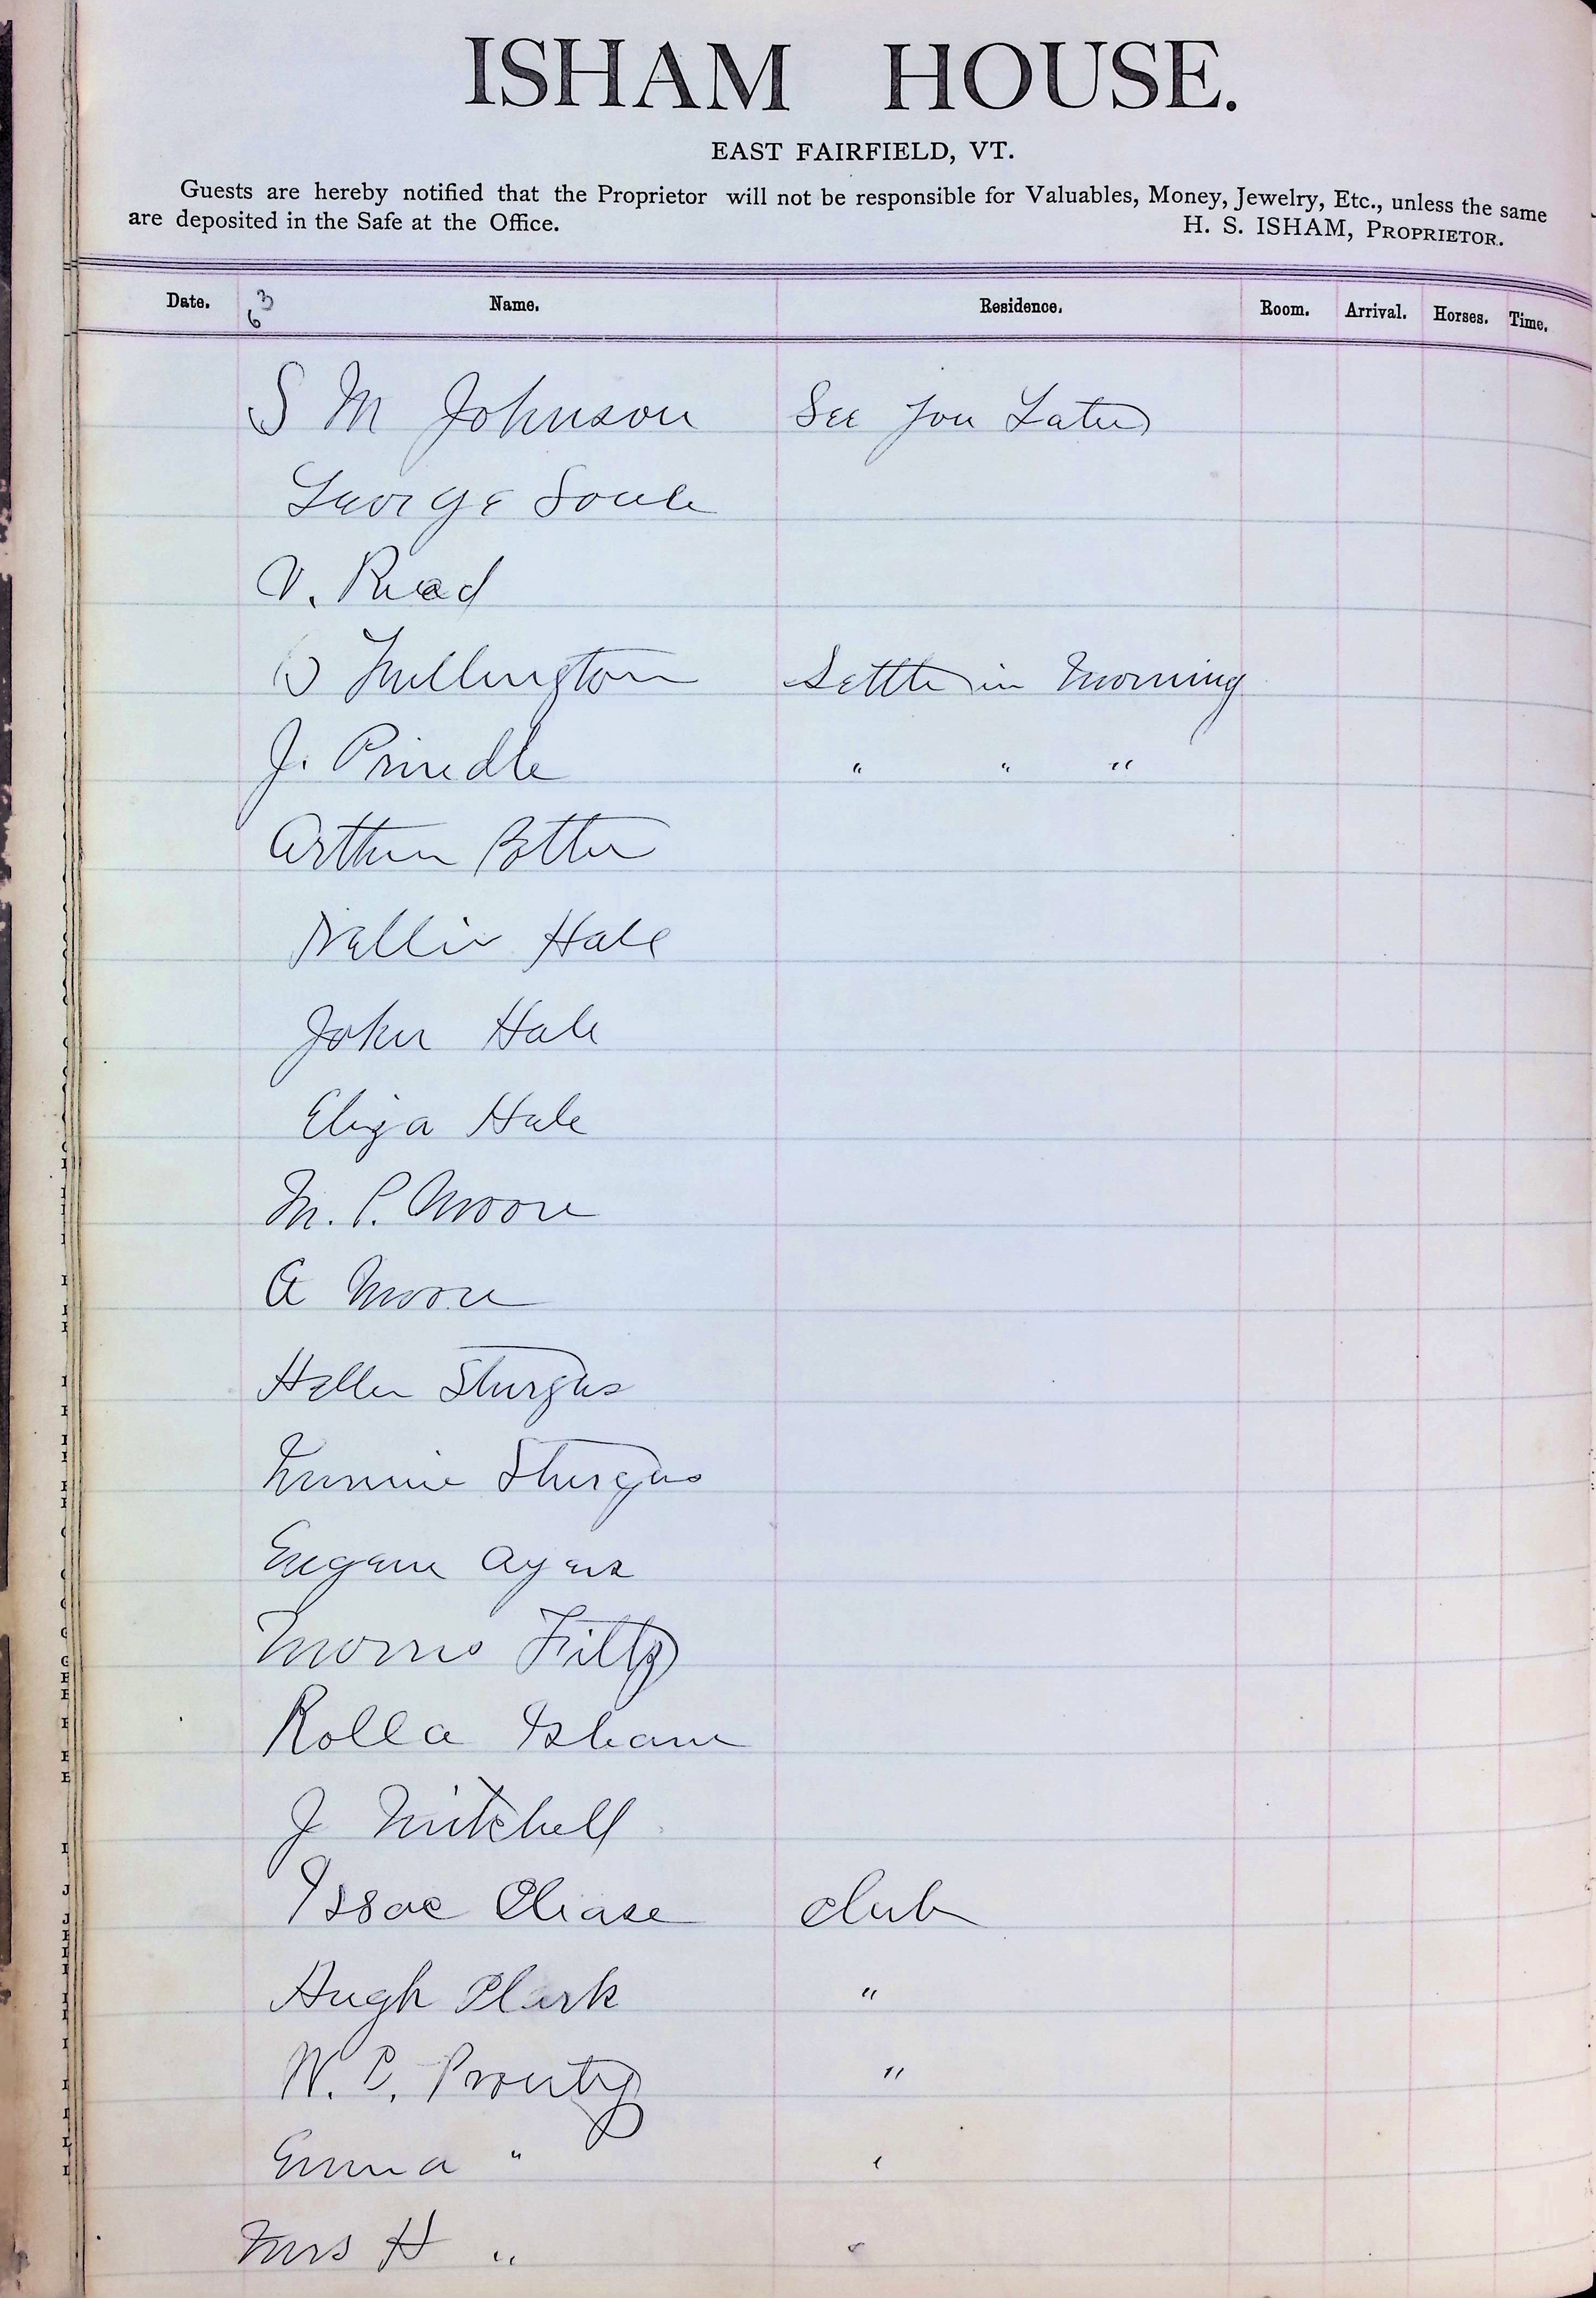 ISHAM HOUSE.
EAST FAIRFIELD, VT.
Guests are hereby notified that the Proprietor will not be responsible for Valuables, Money, Jewelry, Etc., unless the same
are deposited in the Safe at the Office. H. S. ISHAM, PROPRIETOR.
Date. Name. Residence. Room. Arrival. Horses. Time.
63
S M Johnson See You Later
George Soule
V. Read
Mullington Settle in Morning
J. Prindle " " "
Arthur Potter
Nellie Hale
John Hale
Eliza Hale
M. P. Moore
A Moore
Hellen Sturges
Minnie Sturges
Eugene Ayers
Morris Fitts
Rolla Isham
J Mitchell
Issac Chase club
Hugh Clark "
W. C. Prouty "
Emma " "
Mrs H " "